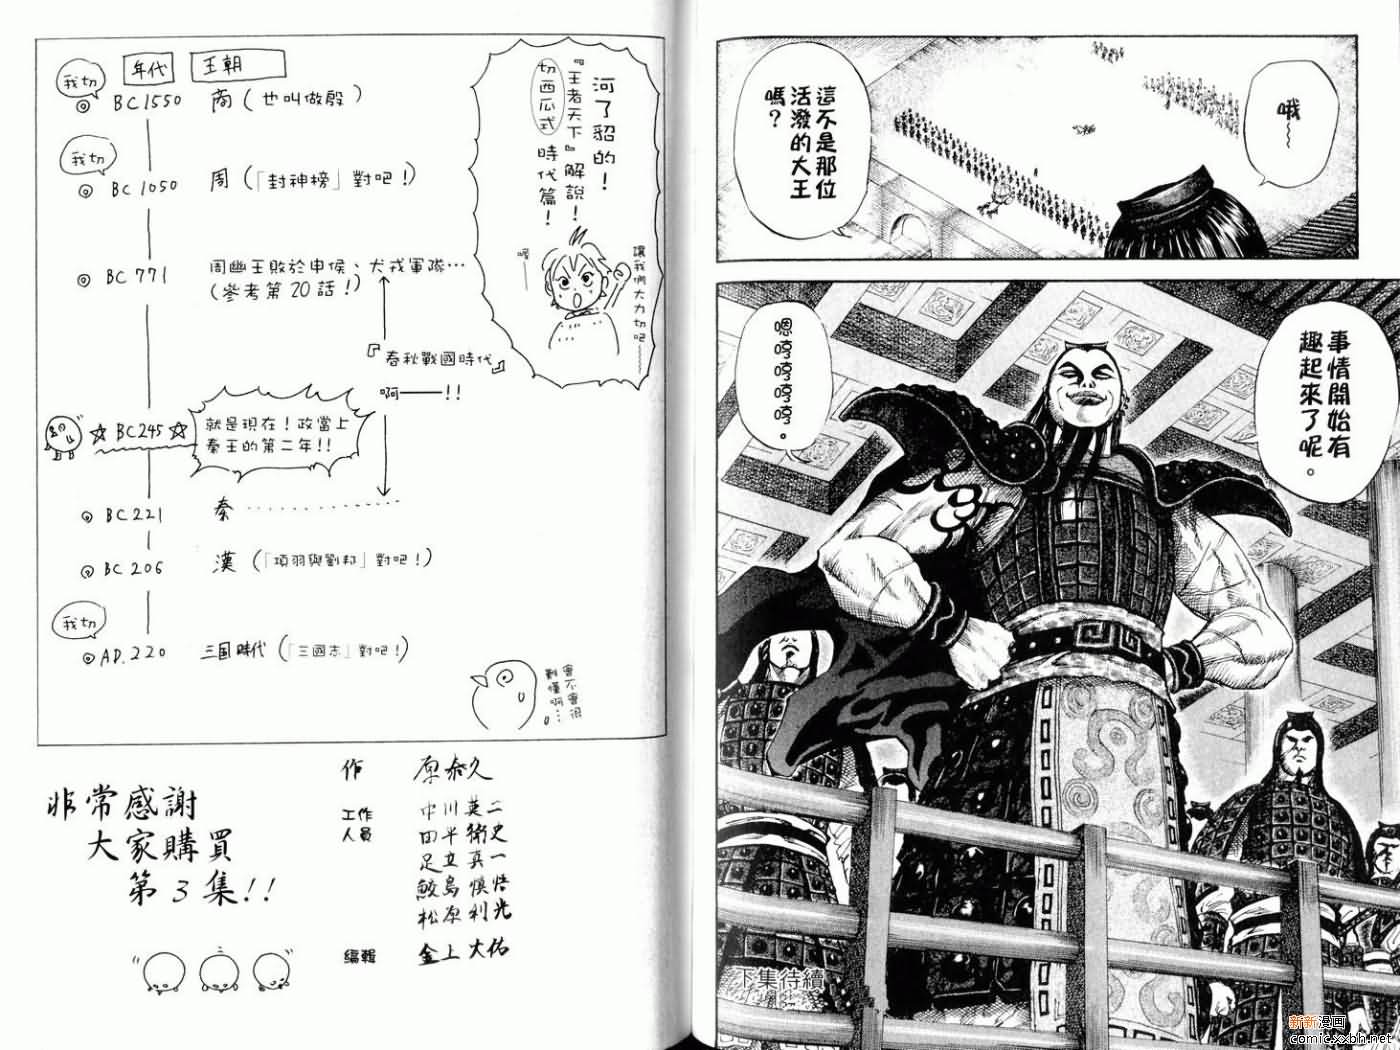 哦～
這不是那位
活潑的大王
嗎？
事情開始有
趣起來了呢。
嗯哼哼哼哼。
下集待續
河了貂的！
『王者天下』解說！
切西瓜式
時代篇！
嘿——
讓我們大力切吧～
年代
王朝
我切
BC 1550
商（也叫做殷）
我切
BC 1050
周（「封神榜」對吧！）
BC 771
周幽王敗於申侯、犬戎軍隊…
（參考第20話！）
『春秋戰國時代』
啊——!!
☆ BC 245 ☆
就是現在！政當上
秦王的第二年!!
BC 221
秦 ‥‥‥‥‥‥‥
BC 206
漢（「項羽與劉邦」對吧！）
我切
AD. 220
三国時代（「三國志」對吧！）
會不會很
難懂啊…
非常感謝
大家購買
第3集!!
作 原泰久
工作
人員
中川英二
田平衛史
足立真一
鮫島慎悟
松原利光
編輯 金上大佑
新新漫画
comic.xxbh.net